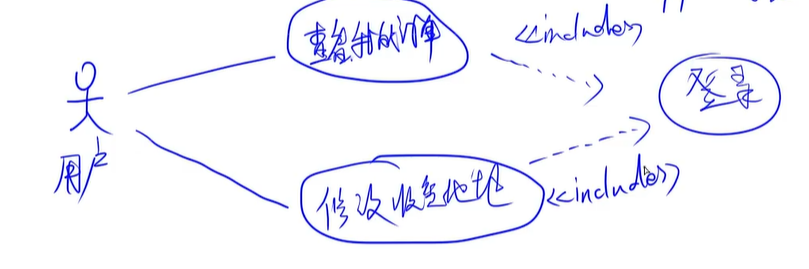 查看我的订单
<<includes>>
登录
用户
修改收货地址
<<includes>>